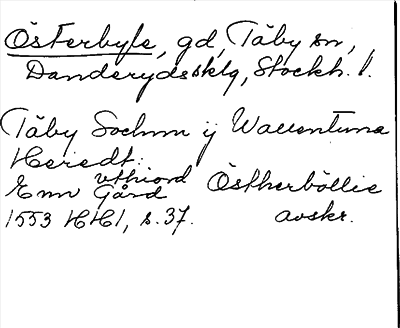 Österbyle, gd, Täby sn,
Danderyds sklg, Stockh. l.
Täby Sochnn ij Wallentuna
Heredt:
Enn vthiord Gård Östherböllie
1553 HH1, s. 37. avskr.